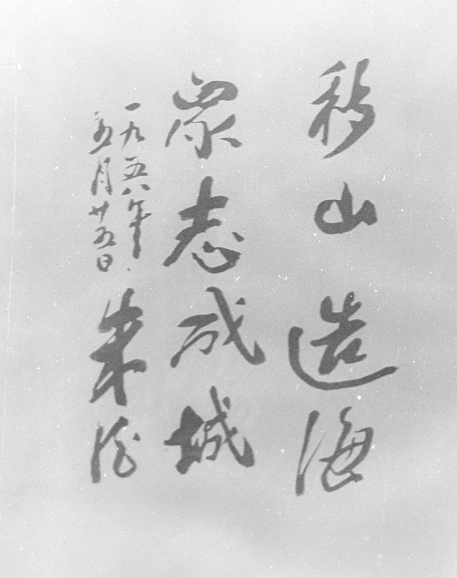 移山造海
众志成城
一九五八年
五月廿五日
朱德